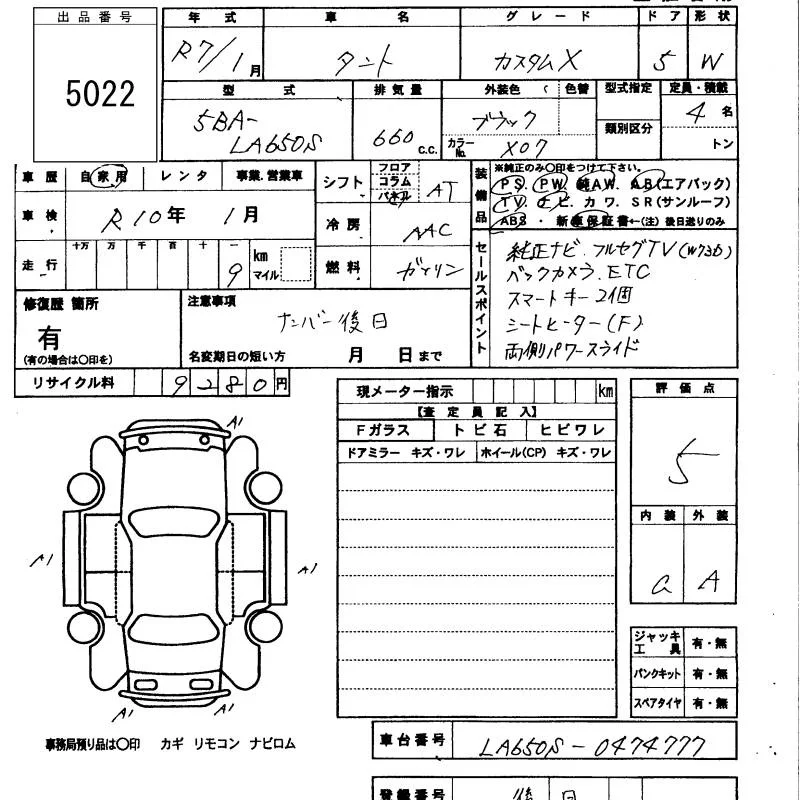 出品番号
5022
年式 車名 グレード ドア 形状
R7/1月 タント カスタムX 5 W
型式 排気量 外装色 ( 色替 型式指定 定員・積載
5BA-LA650S 660 c.c. ブラック カラーNo. X07 類別区分 4名 トン
車歴 自家用 レンタ 事業.営業車
車検 R10年 1月
走行 十万 万 千 百 十 一 9 km マイル
シフト フロア コラム パネル AT
冷房 AAC
燃料 ガソリン
装備品
※純正のみ〇印をつけて下さい。
PS. PW. 純AW. AB(エアバック)
TV. ナビ. カワ. SR(サンルーフ)
ABS ・ 新車保証書←(注) 後日送りのみ
セールスポイント
純正ナビ.フルセグTV(W73D)
バックカメラ.ETC
スマートキー2個
シートヒーター(F)
両側パワースライド
修復歴 箇所
有
(有の場合は〇印を)
注意事項
ナンバー後日
名変期日の短い方 月 日まで
リサイクル料 9280円
現メーター指示 km
【査定員記入】
Fガラス トビ石 ヒビワレ
ドアミラー キズ・ワレ ホイール(CP) キズ・ワレ
評価点
5
内装 外装
C A
A1
A1
A1
A1
A1
ジャッキ工具 有・無
パンクキット 有・無
スペアタイヤ 有・無
事務局預り品は〇印 カギ リモコン ナビロム
車台番号 LA650S-0474777
登録番号 後日